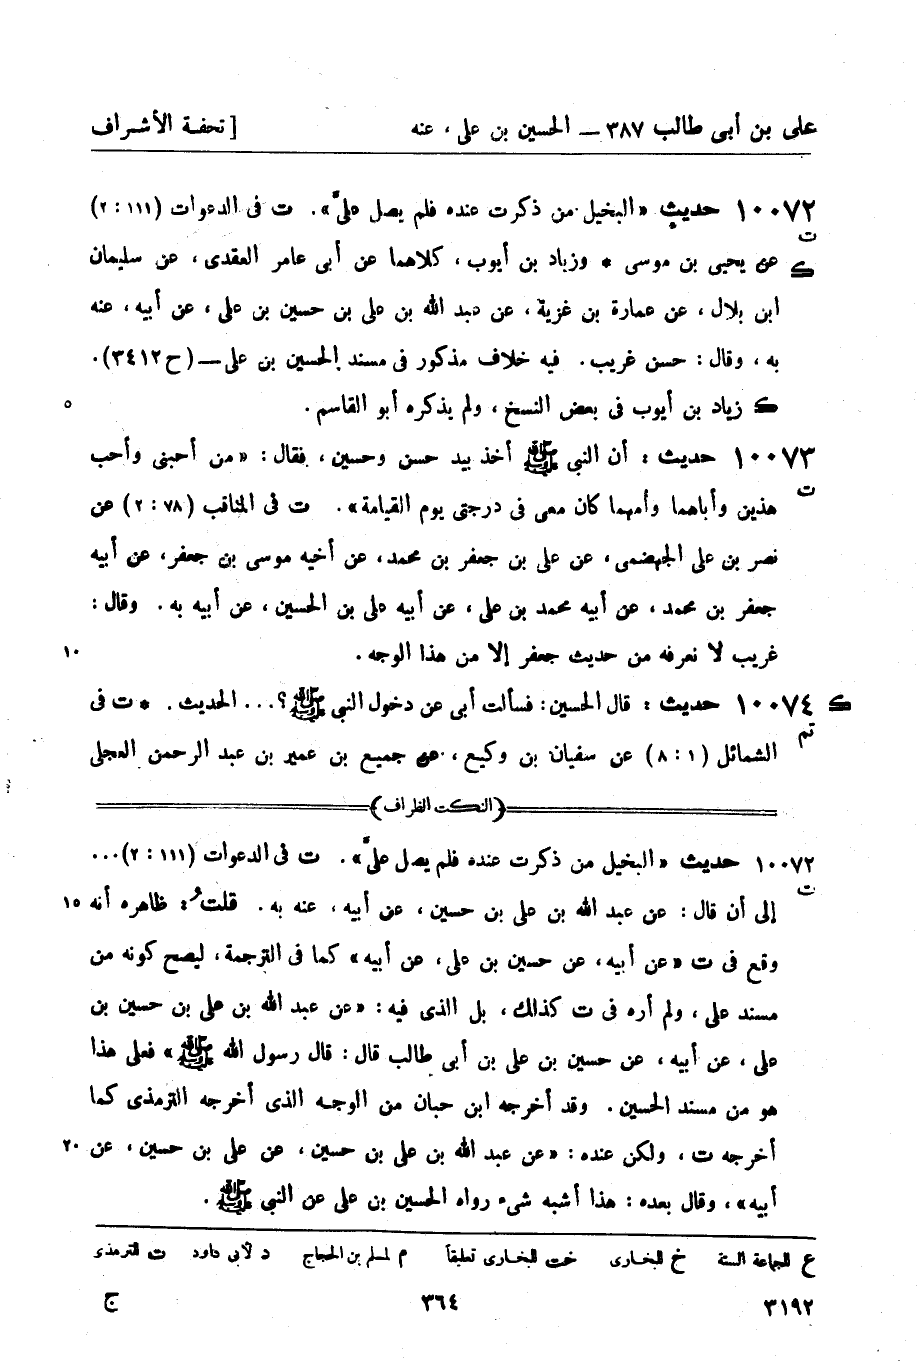 على بن أبى طالب ٣٨٧ — الحسين بن على ، عنه [ تحفة الأشراف
١٠٠٧٢ حديث «البخيل من ذكرت عنده فلم يصل علىّ». ت فى الدعوات (١١١ : ٢)
ت
ك عن يحيى بن موسى * وزياد بن أيوب ، كلاهما عن أبى عامر العقدى ، عن سليمان
ابن بلال ، عن عمارة بن غزية ، عن عبد الله بن على بن حسين بن على ، عن أبيه ، عنه
به ، وقال : حسن غريب . فيه خلاف مذكور فى مسند الحسين بن على — (ح ٣٤١٢) .
ك زياد بن أيوب فى بعض النسخ ، ولم يذكره أبو القاسم . ٥
١٠٠٧٣ حديث : أن النبى ﷺ أخذ بيد حسن وحسين ، فقال : «من أحبنى وأحب
ت
هذين وأباهما وأمهما كان معى فى درجتى يوم القيامة» . ت فى المناقب (٧٨ : ٢) عن
نصر بن على الجهضمى ، عن على بن جعفر بن محمد ، عن أخيه موسى بن جعفر ، عن أبيه
جعفر بن محمد ، عن أبيه محمد بن على ، عن أبيه على بن الحسين ، عن أبيه به . وقال :
غريب لا نعرفه من حديث جعفر إلا من هذا الوجه . ١٠
ك ١٠٠٧٤ حديث : قال الحسين : فسألت أبى عن دخول النبى ﷺ ؟ ... الحديث . * ت فى
تم
الشمائل (١ : ٨) عن سفيان بن وكيع ، عن جميع بن عمير بن عبد الرحمن العجلى
(النكت الظراف)
١٠٠٧٢ حديث «البخيل من ذكرت عنده فلم يصل علىّ» . ت فى الدعوات (١١١ : ٢) ...
ت
إلى أن قال : عن عبد الله بن على بن حسين ، عن أبيه ، عنه به . قلت : ظاهره أنه ١٥
وقع فى ت «عن أبيه ، عن حسين بن على ، عن أبيه» كما فى الترجمة ، ليصح كونه من
مسند على ، ولم أره فى ت كذلك ، بل الذى فيه : «عن عبد الله بن على بن حسين بن
على ، عن أبيه ، عن حسين بن على بن أبى طالب قال : قال رسول الله ﷺ» فعلى هذا
هو من مسند الحسين . وقد أخرجه ابن حبان من الوجه الذى أخرجه الترمذى كما
أخرجه ت ، ولكن عنده : «عن عبد الله بن على بن حسين ، عن على بن حسين ، عن ٢٠
أبيه» ، وقال بعده : هذا أشبه شىء رواه الحسين بن على عن النبى ﷺ .
ع للجماعة الستة خ للبخارى خت للبخارى تعليقاً م لمسلم بن الحجاج د لأبى داود ت للترمذى
٣١٩٢ ٣٦٤ ج